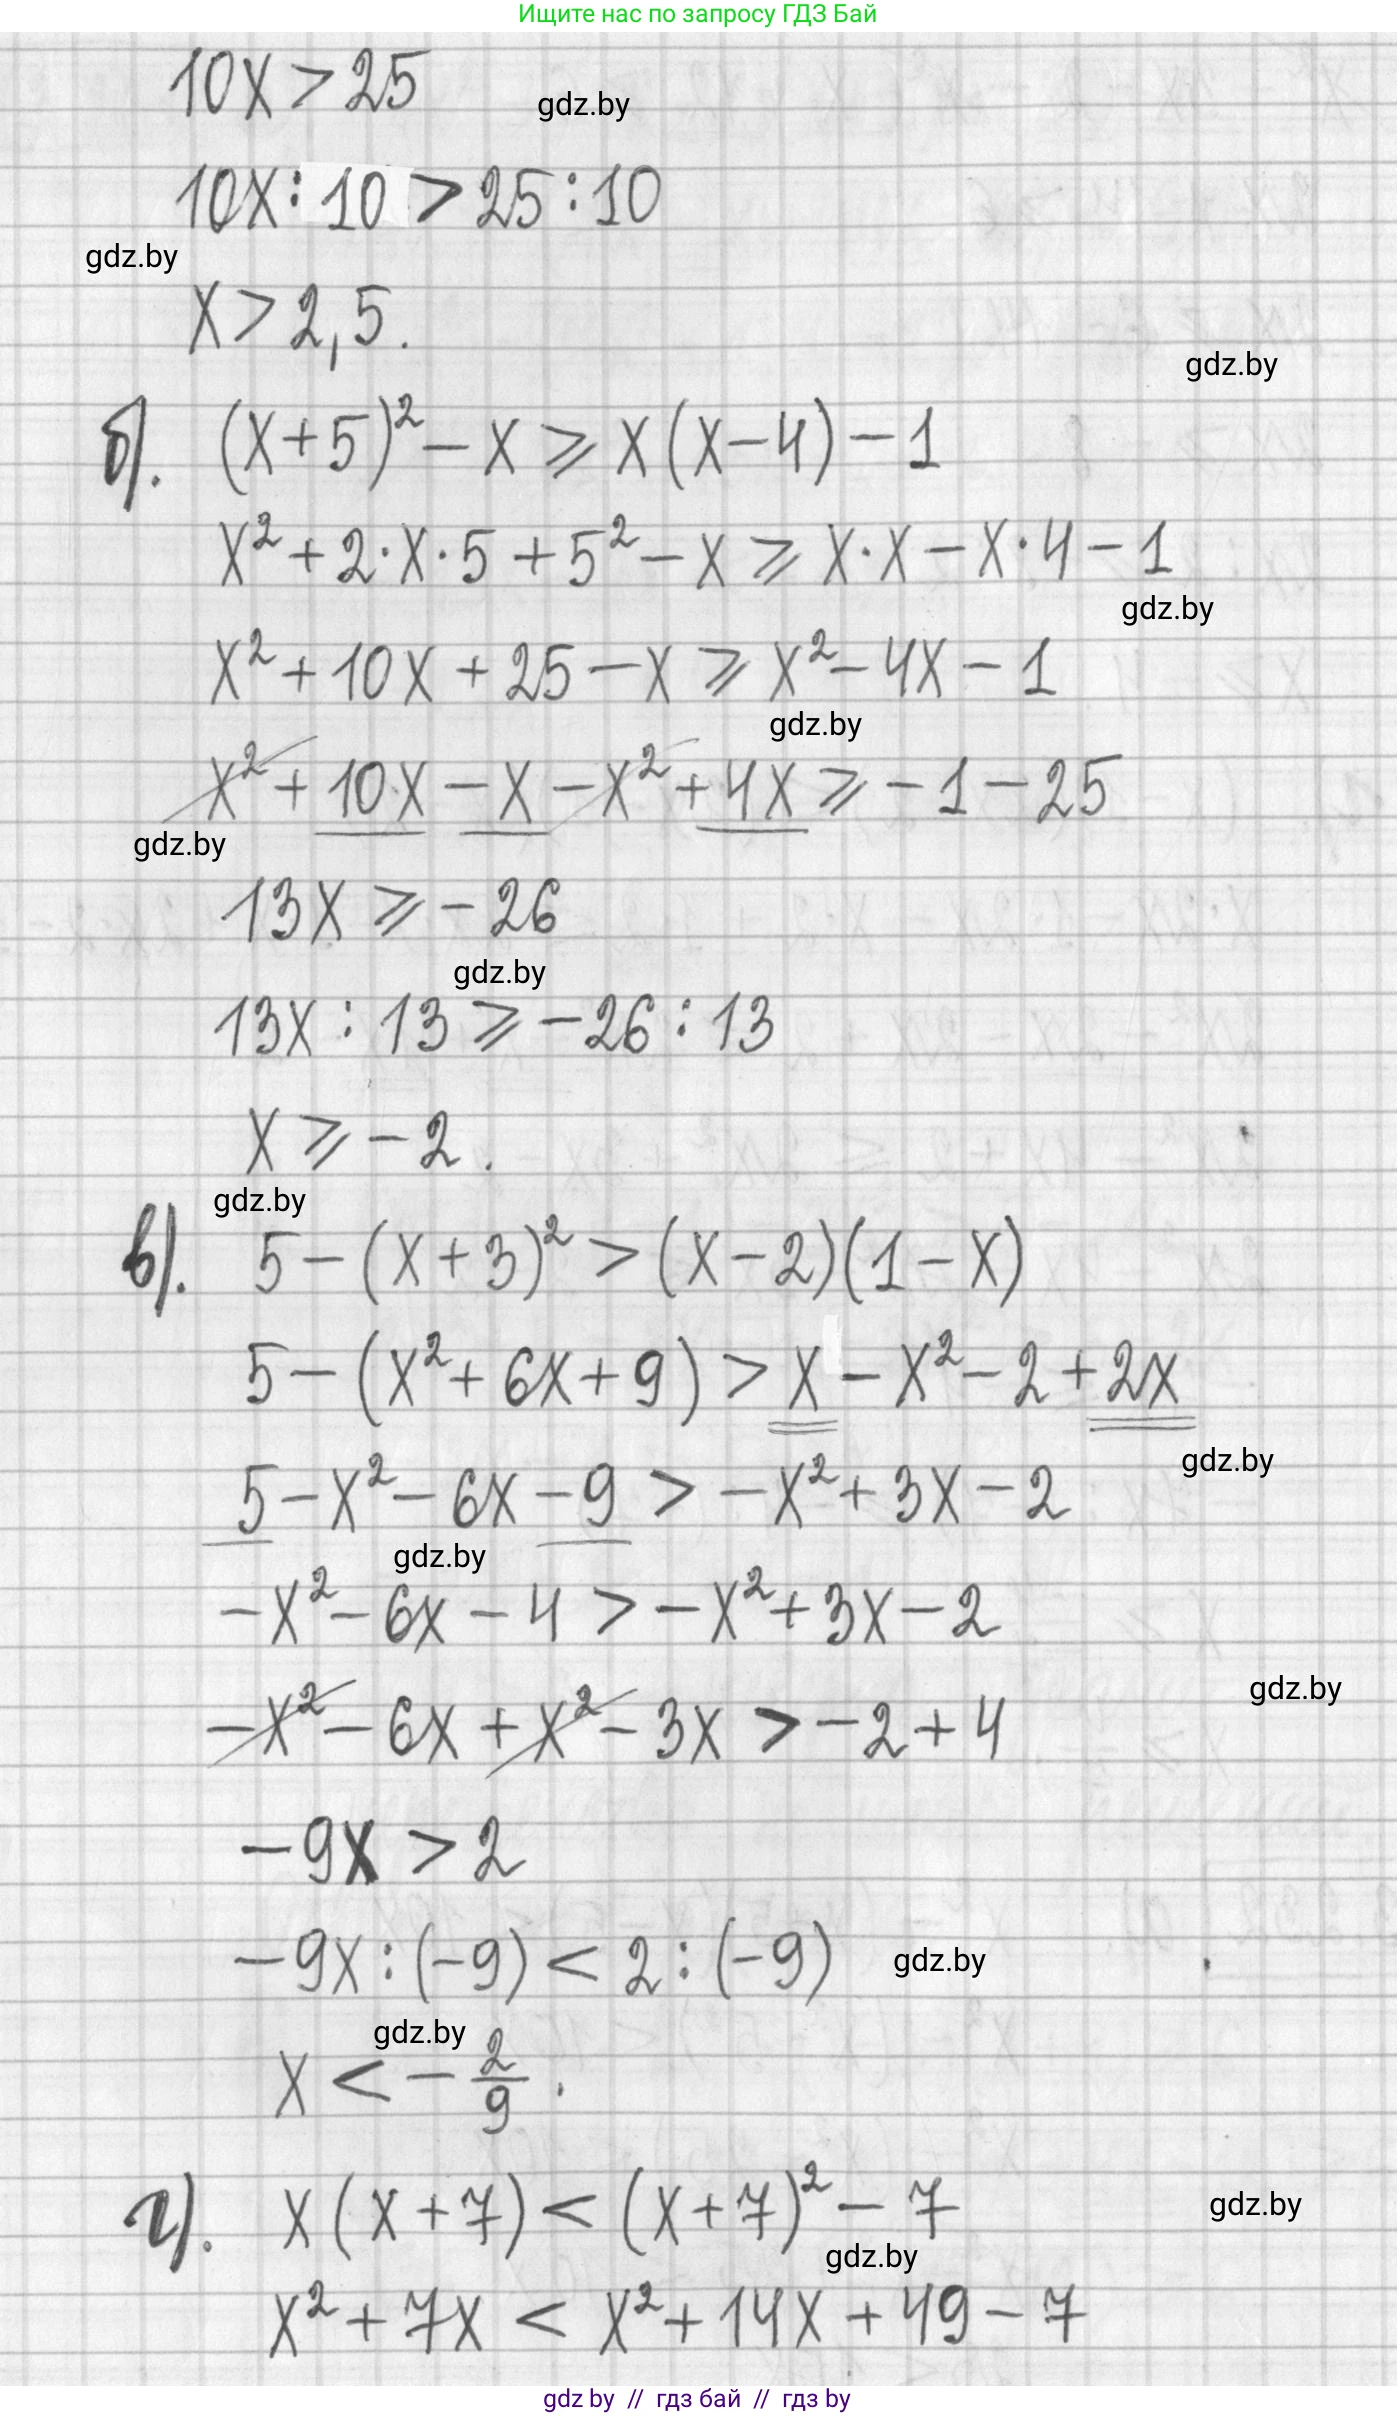 Ищите нас по запросу ГДЗ Бай
10x > 25
gdz.by
10x : 10 > 25 : 10
gdz.by
x > 2,5.
gdz.by
б). (x+5)² - x ⩾ x(x-4) - 1
x² + 2·x·5 + 5² - x ⩾ x·x - x·4 - 1
gdz.by
x² + 10x + 25 - x ⩾ x² - 4x - 1
gdz.by
x² + 10x - x - x² + 4x ⩾ -1 - 25
gdz.by
13x ⩾ -26
gdz.by
13x : 13 ⩾ -26 : 13
x ⩾ -2.
gdz.by
в). 5 - (x+3)² > (x-2)(1-x)
5 - (x² + 6x + 9) > x - x² - 2 + 2x
gdz.by
5 - x² - 6x - 9 > -x² + 3x - 2
gdz.by
-x² - 6x - 4 > -x² + 3x - 2
gdz.by
-x² - 6x + x² - 3x > -2 + 4
-9x > 2
-9x : (-9) < 2 : (-9)
gdz.by
gdz.by
x < -2/9.
г). x(x+7) < (x+7)² - 7
gdz.by
gdz.by
x² + 7x < x² + 14x + 49 - 7
gdz by // гдз бай // гдз by